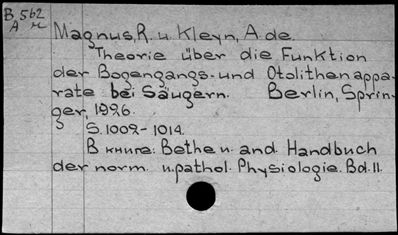 B 562
A
Magnus, R. u. Kleyn, A. de.
Theorie über die Funktion
der Bogengangs- und Otolithenappa-
rate bei Säugern. Berlin, Sprin-
ger, 1926.
S. 1002-1014.
В книге: Bethe u. and. Handbuch
der norm. u. pathol. Physiologie. Bd. 11.